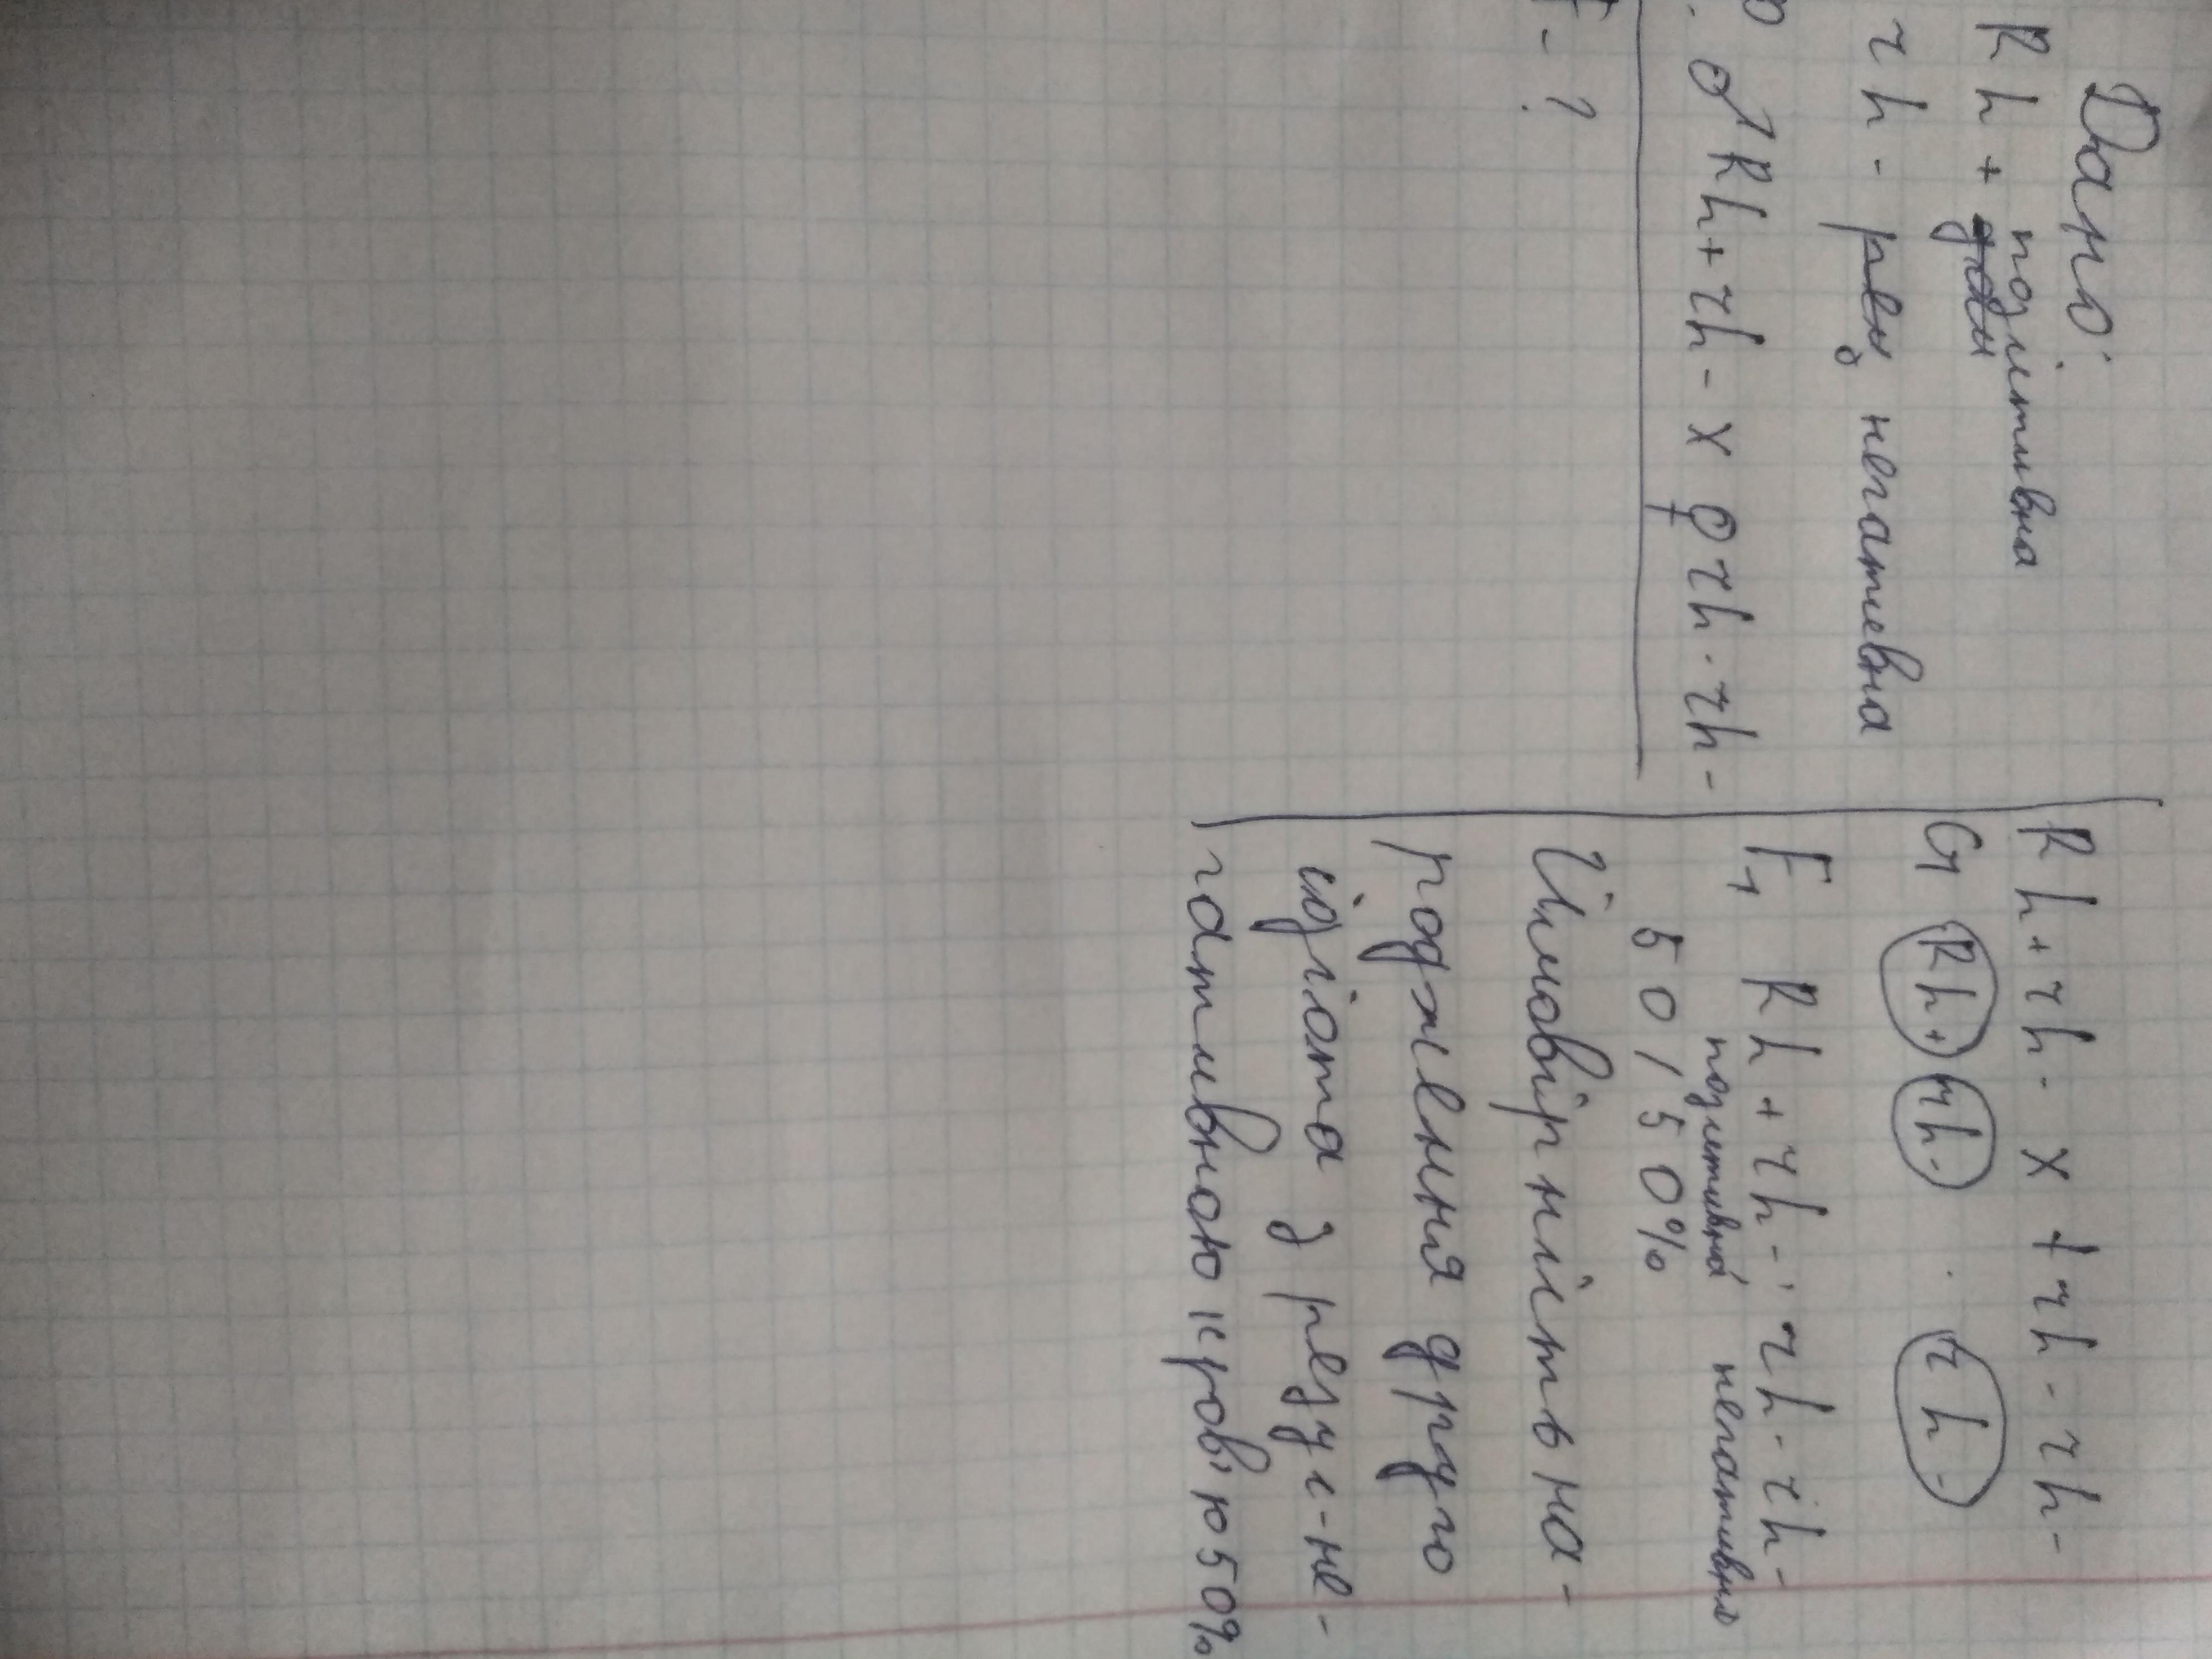 Дано:
Rh+ позітивна
rh- негативна
♂Rh+rh- x ♀rh-rh-
F-?
Rh+rh- x rh-rh-
G Rh+ rh- rh-
F1 Rh+rh-; rh-rh-
позитивна негативна
50/50%
Ймовірність на-
родження друго
ї дітота з резус-не-
гативною кров'ю 50%